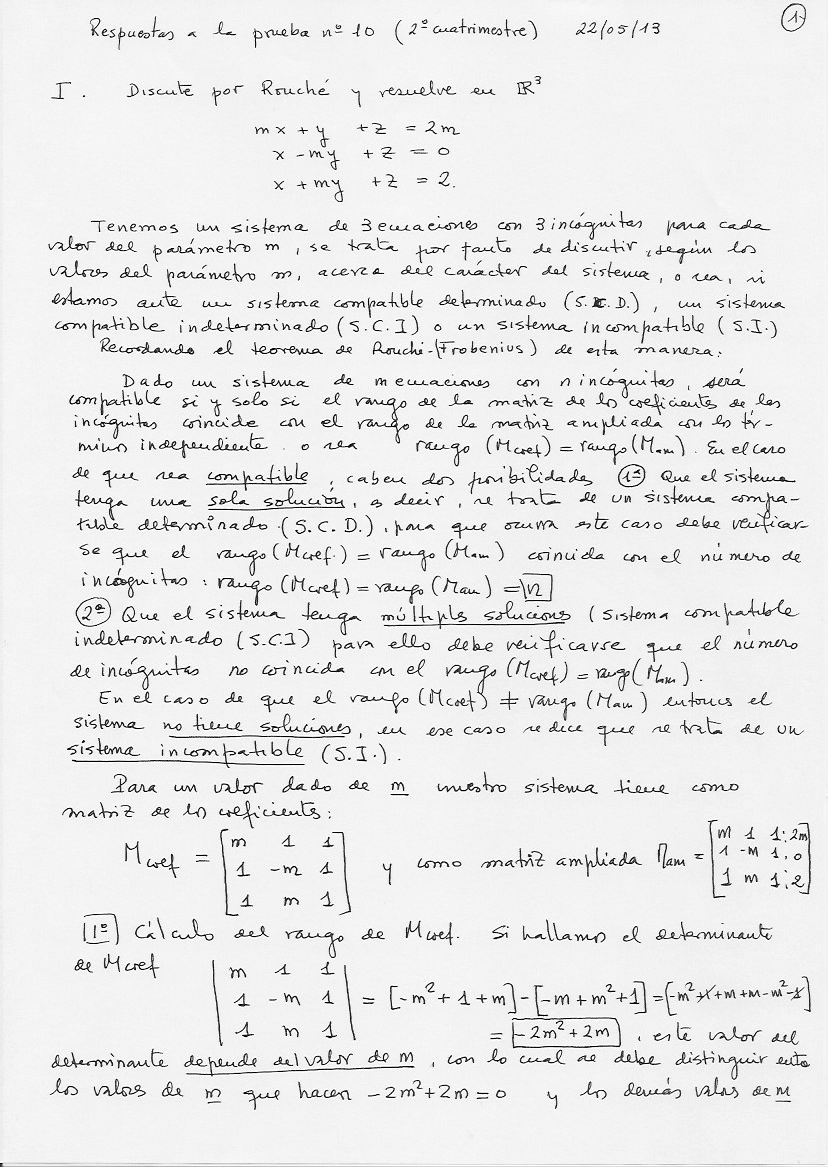 1
Respuestas a la prueba nº 10 (2º cuatrimestre) 22/05/13
I. Discute por Rouché y resuelve en ℝ³
mx + y + z = 2m
x - my + z = 0
x + my + z = 2.
Tenemos un sistema de 3 ecuaciones con 3 incógnitas para cada
valor del parámetro m, se trata por tanto de discutir, según los
valores del parámetro m, acerca del carácter del sistema, o sea, si
estamos ante un sistema compatible determinado (S.C.D.), un sistema
compatible indeterminado (S.C.I) o un sistema incompatible (S.I.)
Recordando el teorema de Rouché-(Frobenius) de esta manera:
Dado un sistema de m ecuaciones con n incógnitas, será
compatible si y solo si el rango de la matriz de los coeficientes de las
incógnitas coincide con el rango de la matriz ampliada con los tér-
minos independiente. o sea rango (Mcoef) = rango (Mam). En el caso
de que sea compatible, caben dos posibilidades 1ª Que el sistema
tenga una sola solución, es decir, se trata de un sistema compa-
tible determinado (S.C.D.), para que ocurra este caso debe verificar-
se que el rango (Mcoef.) = rango (Mam) coincida con el número de
incógnitas: rango (Mcoef) = rango (Mam) = n
2ª Que el sistema tenga múltiples soluciones (sistema compatible
indeterminado (S.C.I) para ello debe verificarse que el número
de incógnitas no coincida con el rango (Mcoef) = rango (Mam).
En el caso de que el rango (Mcoef) ≠ rango (Mam) entonces el
sistema no tiene soluciones, en ese caso se dice que se trata de un
sistema incompatible (S.I.).
Para un valor dado de m nuestro sistema tiene como
matriz de los coeficientes:
Mcoef = [m 1 1; 1 -m 1; 1 m 1] y como matriz ampliada Mam = [m 1 1 : 2m; 1 -m 1 : 0; 1 m 1 : 2]
1º Cálculo del rango de Mcoef. Si hallamos el determinante
de Mcoef |m 1 1; 1 -m 1; 1 m 1| = [-m²+1+m]-[-m+m²+1] = [-m²+1+m+m-m²-1]
= -2m²+2m, este valor del
determinante depende del valor de m, con lo cual se debe distinguir entre
los valores de m que hacen -2m²+2m=0 y los demás valores de m